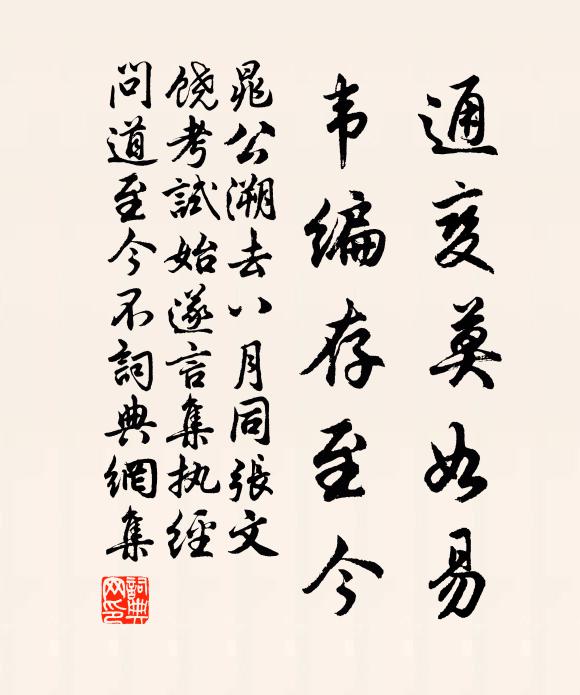 通变莫如易
韦编存至今
晁公溯去八月同張文
饶考試始遂言集执經
問道至今不詞典網集
詞典网印